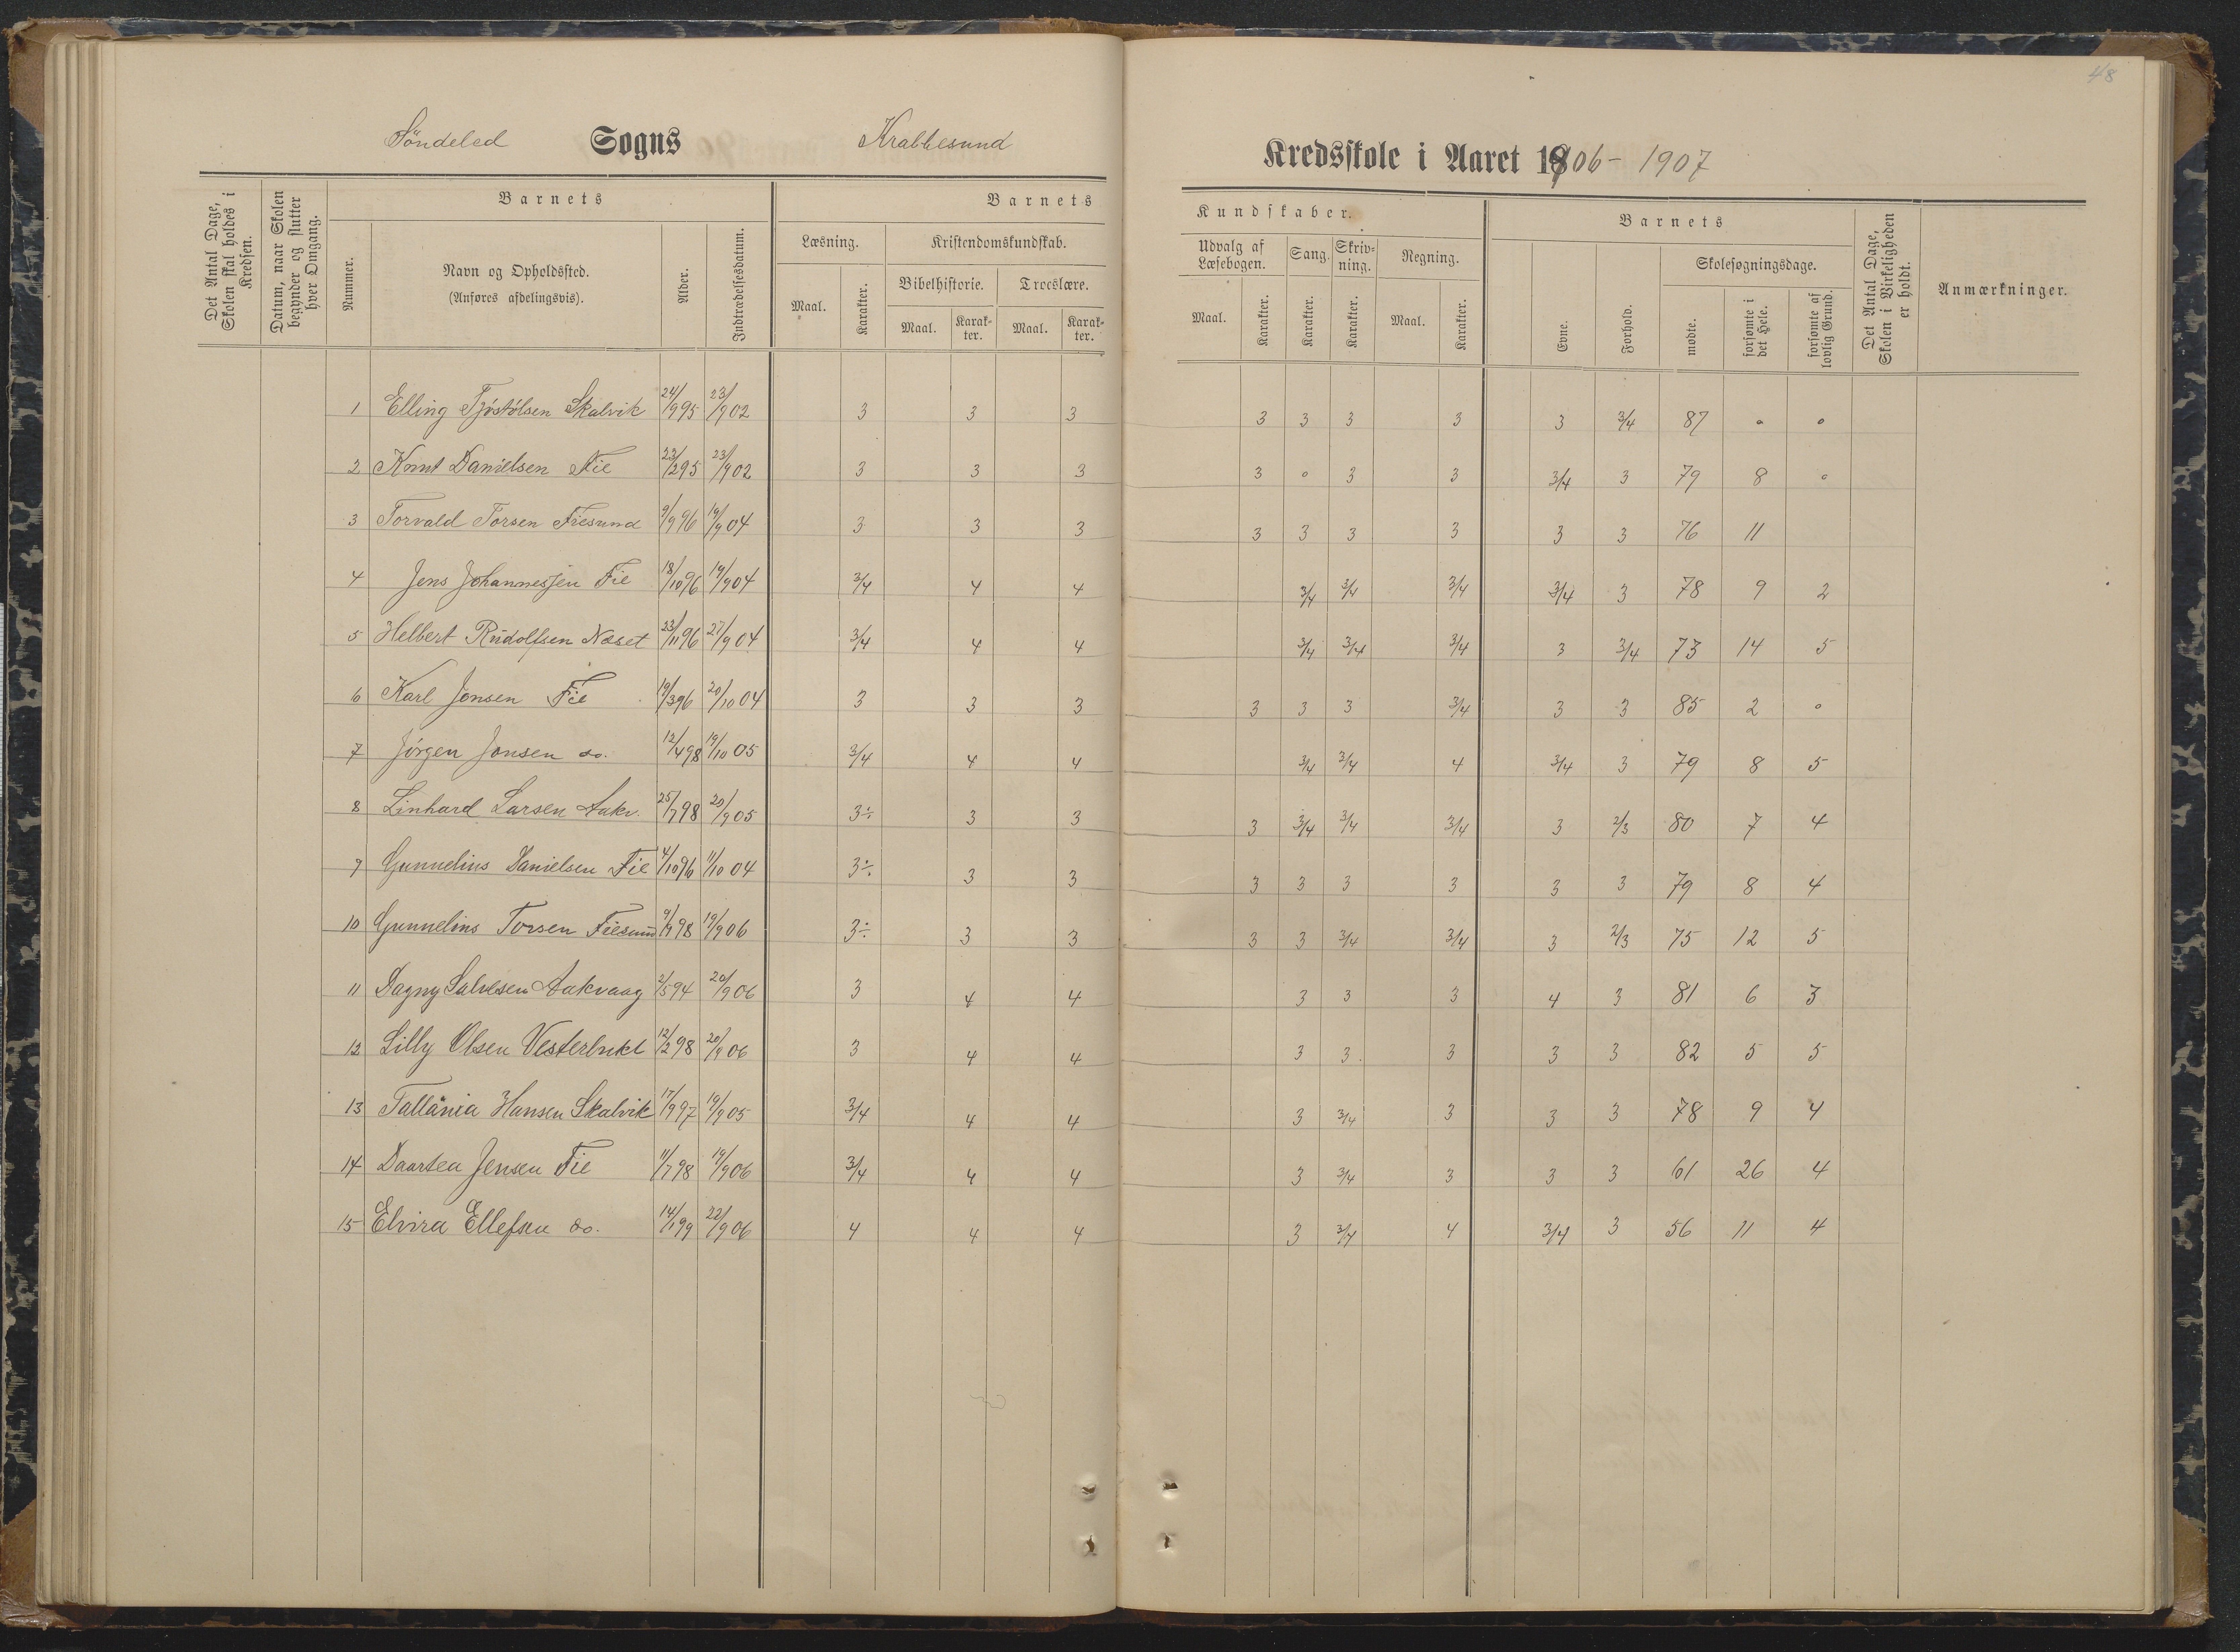 48
Söndeled Sogns Krabbesund Kredsskole i Aaret 1906-1907
Det Antal Dage, Skolen skal holdes i Kredsen.
Datum, naar Skolen begynder og slutter hver Omgang.
Barnets
Nummer.
Navn og Opholdssted.
(Anføres afdelingsvis).
Alder.
Indtrædelsesdatum.
Barnets Kundskaber.
Læsning.
Maal.
Karakter.
Kristendomskundskab.
Bibelhistorie.
Troeslære.
Maal.
Karakter.
Maal.
Karakter.
Udvalg af Læsebogen.
Maal.
Karakter.
Sang.
Karakter.
Skrivning.
Karakter.
Regning.
Maal.
Karakter.
Barnets
Evne.
Forhold.
Skolesøgningsdage.
mødte.
forsømte i det Hele.
forsømte af lovlig Grund.
Det Antal Dage, Skolen i Virkeligheden er holdt.
Anmærkninger.
1 Elling Tjöstölsen Skalvik 24/9 95 23/9 02 3 3 3 3 3 3 3 3 3/4 87 0 0
2 Knut Danielsen Fie 23/2 95 23/9 02 3 3 3 3 0 3 3 3/4 3 79 8 0
3 Torvald Torsen Fiesund 9/9 96 19/9 04 3 3 3 3 3 3 3 3 3 76 11
4 Jens Johannesjen Fie 18/10 96 19/9 04 3/4 4 4 3/4 3/4 3/4 3/4 3 78 9 2
5 Helbert Rudolfsen Næset 23/11 96 27/9 04 3/4 4 4 3/4 3/4 3/4 3 3/4 73 14 5
6 Karl Jonsen Fie 19/3 96 20/10 04 3 3 3 3 3 3 3/4 3 3 85 2 0
7 Jörgen Jonsen do. 12/4 98 19/10 05 3/4 4 4 3/4 3/4 4 3/4 3 79 8 5
8 Linhard Larsen Aakv. 25/7 98 20/9 05 3÷ 3 3 3 3/4 3/4 3/4 3 2/3 80 7 4
9 Gunnelius Danielsen Fie 4/10 96 11/10 04 3÷ 3 3 3 3 3 3 3 3 79 8 4
10 Gunnelius Torsen Fiesund 9/9 98 19/9 06 3÷ 3 3 3 3 3/4 3/4 3 2/3 75 12 5
11 Dagny Salvesen Aakvaag 2/5 94 20/9 06 3 4 4 3 3 3 4 3 81 6 3
12 Lilly Olsen Vesterbukt 12/2 98 20/9 06 3 4 4 3 3 3 3 3 82 5 5
13 Tallania Hansen Skalvik 17/9 97 19/9 05 3/4 4 4 3 3/4 3 3 3 78 9 4
14 Daartea Jensen Fie 11/7 98 19/9 06 3/4 4 4 3 3/4 3 3 3 61 26 4
15 Elvira Ellefsen do. 14/1 99 22/9 06 4 4 4 3 3/4 4 3/4 3 56 11 4